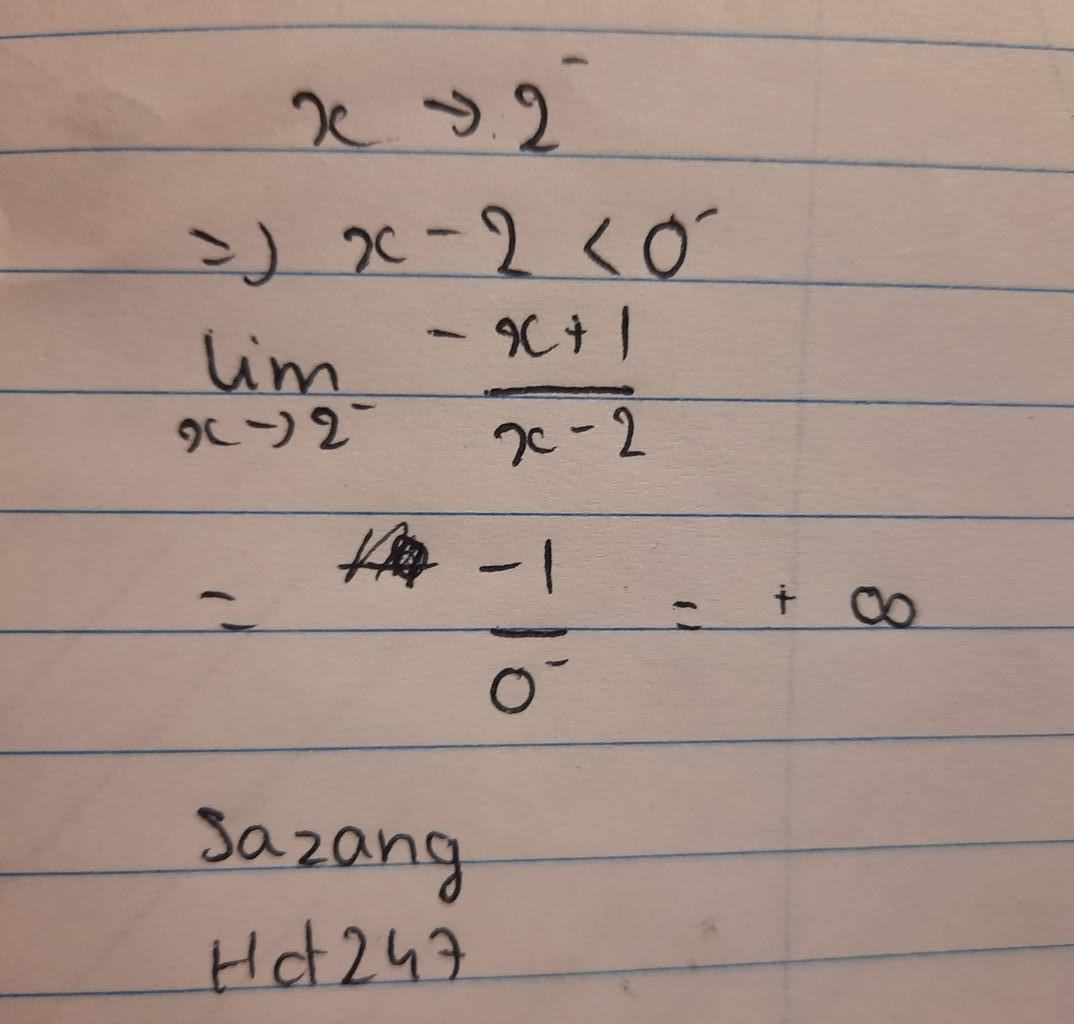 x → 2⁻
=> x - 2 < 0⁻
lim x→2⁻ (-x+1)/(x-2)
= -1/0⁻ = + ∞
Sazang
Hdt247